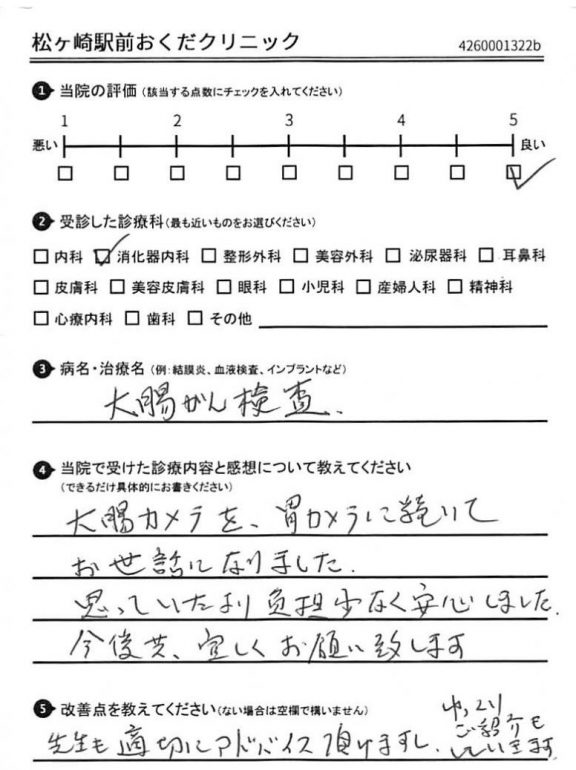 松ヶ崎駅前おくだクリニック
4260001322b
1 当院の評価 (該当する点数にチェックを入れてください)
1 2 3 4 5
悪い 良い
2 受診した診療科 (最も近いものをお選びください)
内科 消化器内科 整形外科 美容外科 泌尿器科 耳鼻科
皮膚科 美容皮膚科 眼科 小児科 産婦人科 精神科
心療内科 歯科 その他
3 病名・治療名 (例:結膜炎、血液検査、インプラントなど)
大腸がん検査、
4 当院で受けた診療内容と感想について教えてください
(できるだけ具体的にお書きください)
大腸カメラを、胃カメラに続いて
お世話になりました.
思っていたより負担少なく安心しました.
今後共、宜しくお願い致します
5 改善点を教えてください (ない場合は空欄で構いません)
先生も適切にアドバイス頂けますし、
ご紹介を
しています